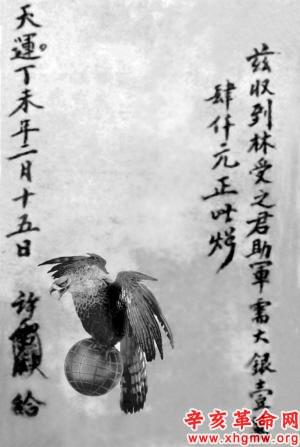 茲收到林受之君助軍需大銀壹
肆仟元正此
天運丁未年二月十五日
許雪 給
辛亥革命网
www.xhgmw.org